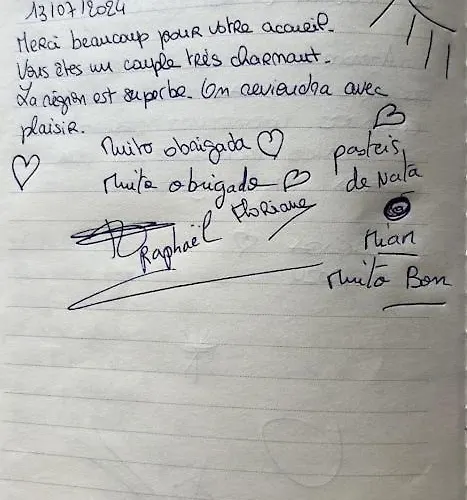 13/07/2024
Merci beaucoup pour votre accueil.
Vous êtes un couple très charmant.
La région est superbe. On reviendra avec
plaisir.
Muito obrigada
Muito obrigado
Floriane
Raphaël
pasteis
de Nata
Mian
Muito Bon